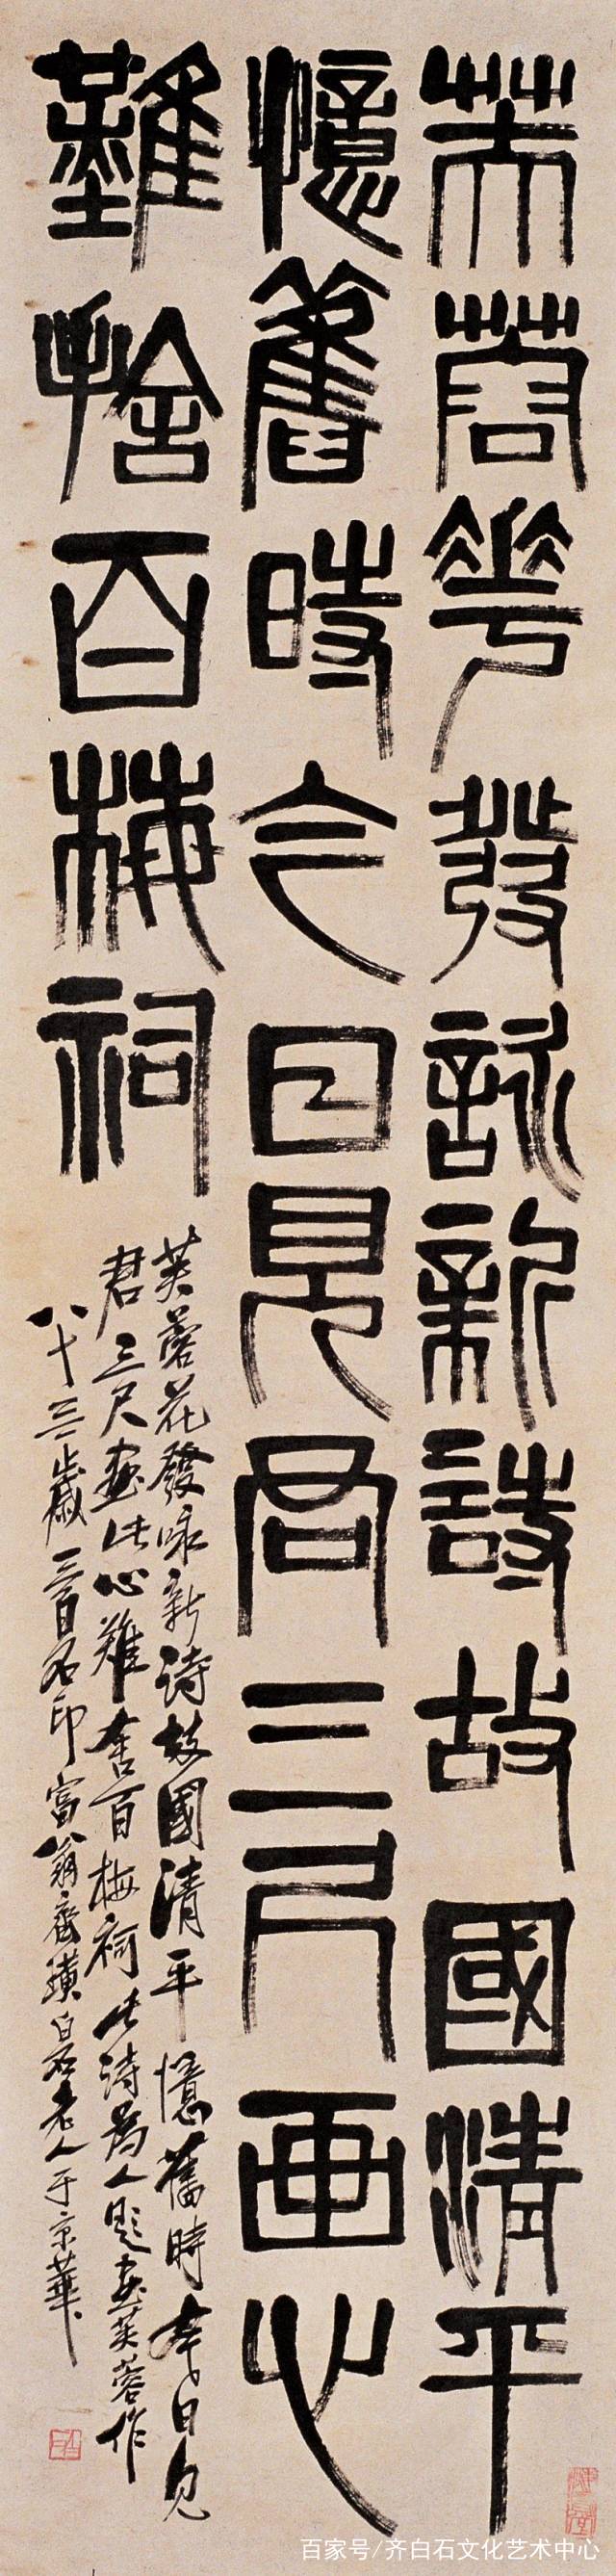 芙蓉華發詠新詩故國清平
憶舊時今日見君三尺画心
難捨百梅祠
芙蓉花發咏新詩故國清平憶舊時今日見
君三尺畫此心難舍百梅祠此詩爲人題畫芙蓉作
八十三歲三百石印富翁齊璜白石老人于京華
百家号/齐白石文化艺术中心